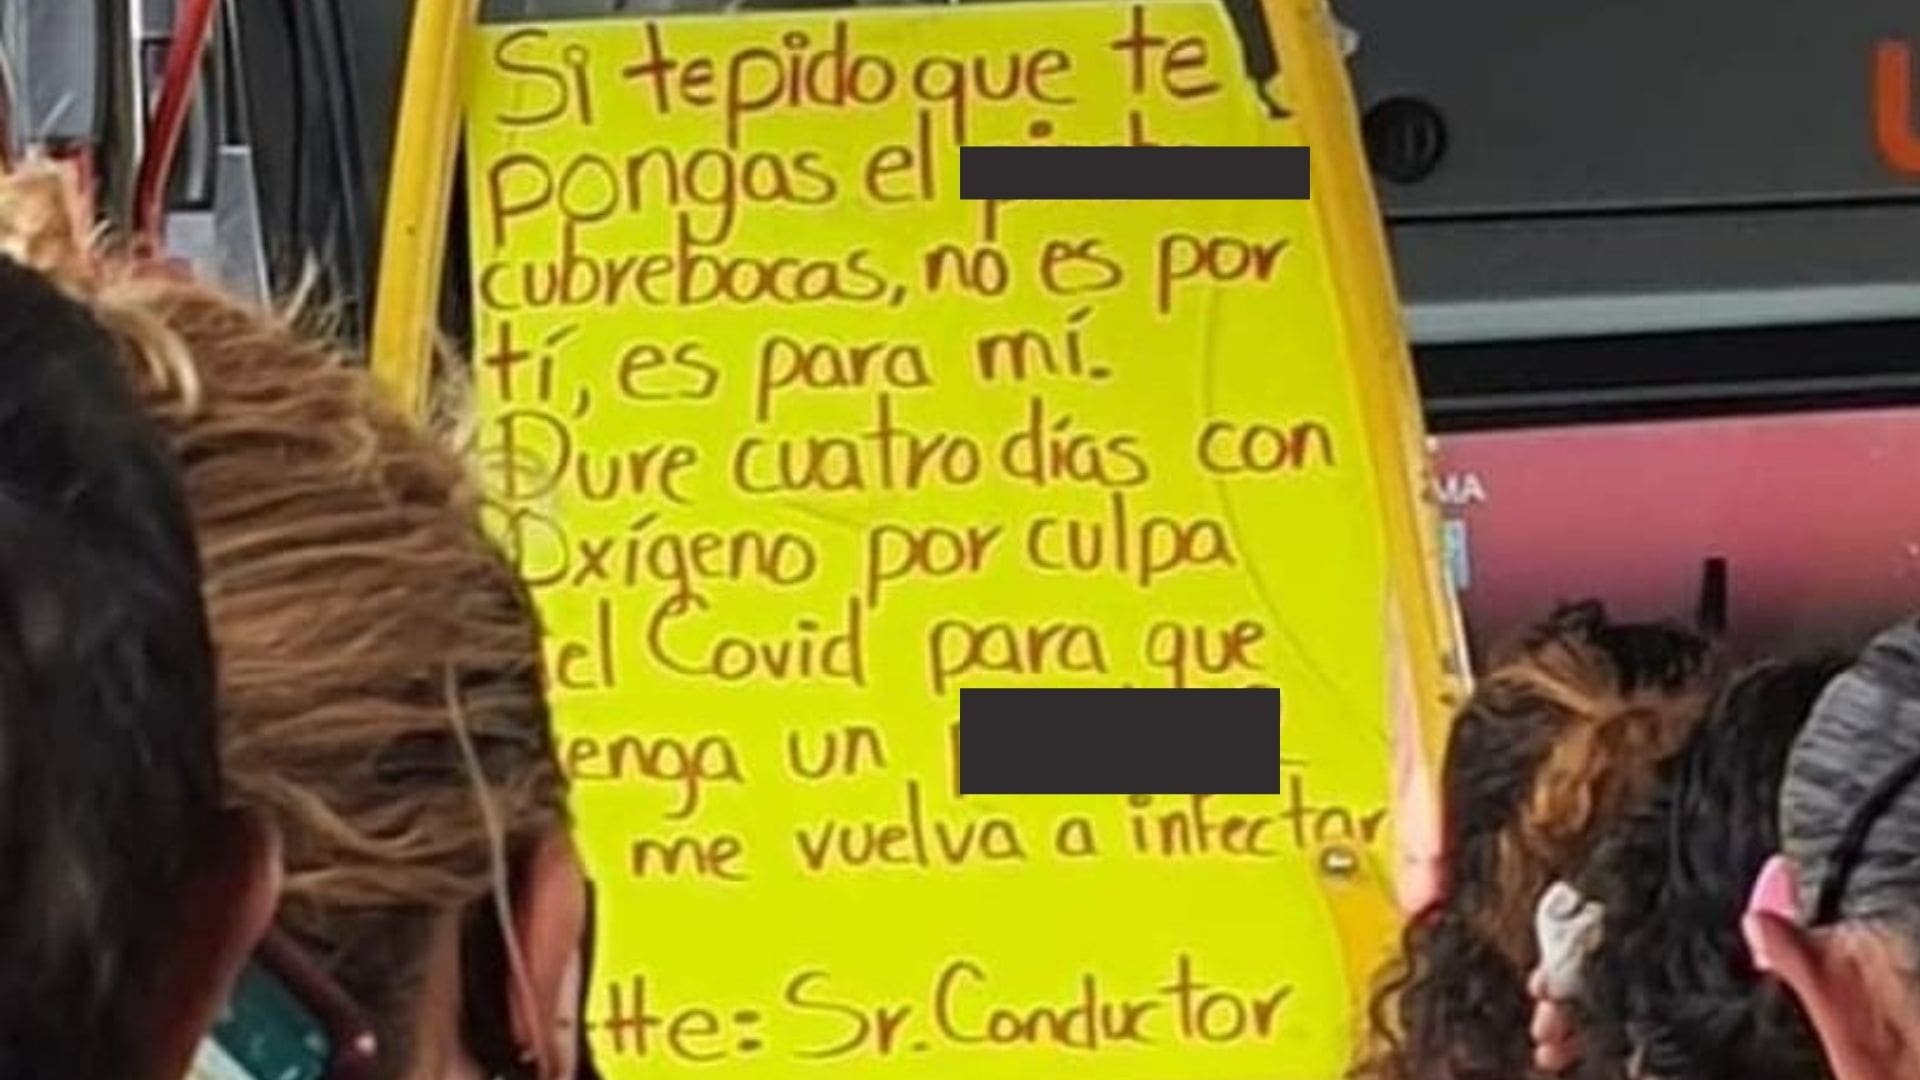 Si te pido que te
pongas el
cubrebocas, no es por
tí, es para mí.
Dure cuatro días con
Oxígeno por culpa
el Covid para que
enga un
me vuelva a infectar
Atte: Sr. Conductor
MA